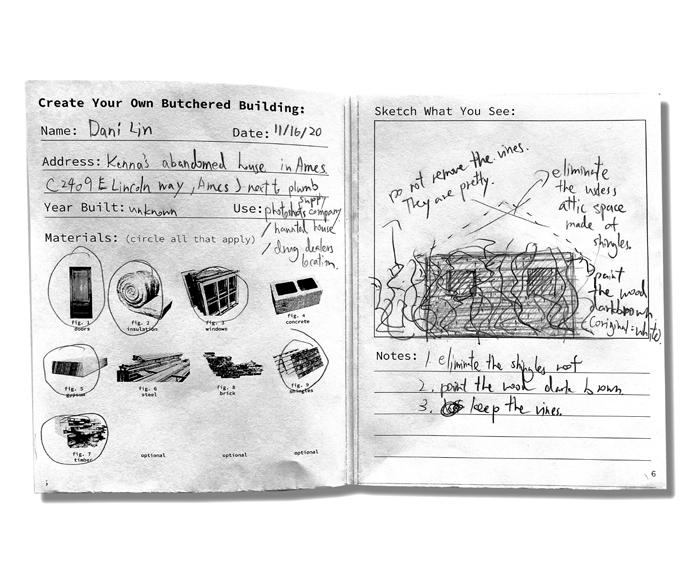 Create Your Own Butchered Building:
Name: Dani Lin Date: 11/16/20
Address: Kenna's abandomed house in Ames
(2409 E Lincoln way, Ames) next to plumb
supply
Year Built: unknown Use: photoshots company
/ haunted house
/ drug dealers
location.
Materials: (circle all that apply)
fig. 1
doors
fig. 2
insulation
fig. 3
windows
fig. 4
concrete
fig. 5
gypsum
fig. 6
steel
fig. 8
brick
fig. 9
shingles
fig. 7
timber
optional
optional
optional
Sketch What You See:
Do not remove the vines.
They are pretty.
eliminate
the useless
attic space
made of
shingles.
paint
the wood
darkbrown
(original=white).
Notes: 1. eliminate the shingles roof
2. paint the wood dark brown.
3. keep the vines.
6